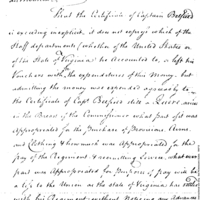 That the Certificate of Captain Belfeild
is exceeding inexplicit, it does not express which of the
Staff departments (whether of the United States or
of the State of Virginia) he accounted to, & left his
Vouchers with, the expenditures of this Money, but
admitting the money was expended agreeably to
the Certificate of Capt Belfeild still a Query arises
in the Breas of the Commissioner what part of it was
Appropriated for the Purchase of Provisions, Arms, and
Clothing & how much was Appropriated for the
pay of the Regiment & recruiting Service, what ever
part was Appropriated for Purpose of pay will be
a loss to the Union as the State of Virginia has settled
with his Regiment without Noticing any Advances